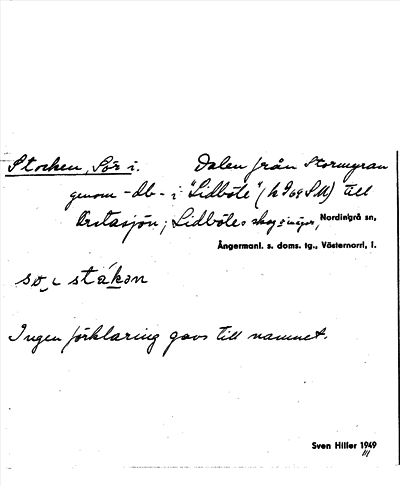 Stocken, Sör i. Dalen från Stormyran
genom -db- i "Lidböle" (h 969 SM) till
Orstasjön; Lidböles skogsägor, Nordingrå sn,
Ångermanl. s. doms. tg., Västernorrl. l.
stákan
Ingen förklaring gavs till namnet.
Sven Hiller 1949